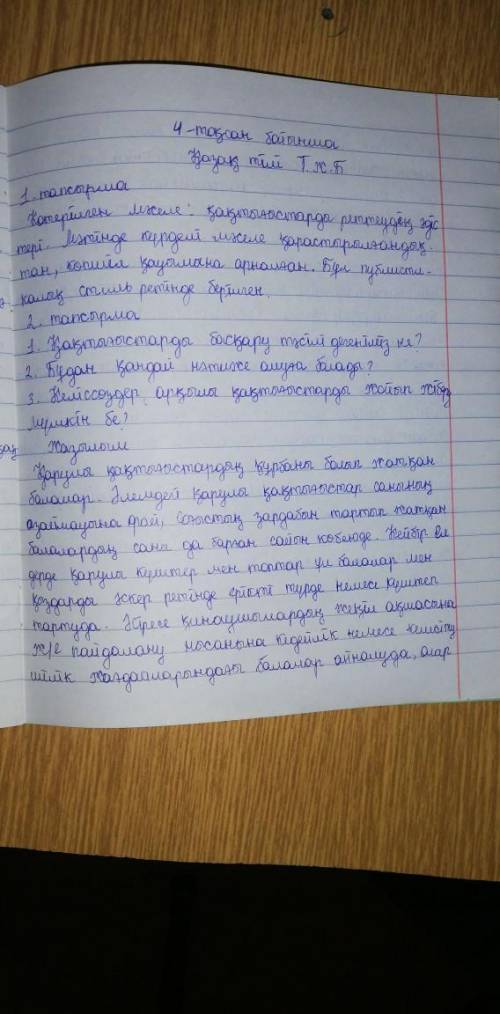 4-тоқсан бойынша
Қазақ тілі Т.Ж.Б
1. тапсырма
Көтерілген мәселе: қақтығыстарды реттеудің әдіс
тері. Мәтінде күрделі мәселе қарастырылғандық
тан, көпшілік қауымына арналған. Бұл публисти-
калық стиль ретінде берілген.
2. тапсырма
1. Қақтығыстарды басқару тәсілі дегеніміз не?
2. Бұдан қандай нәтиже алуға болады?
3. Келіссөздер арқылы қақтығыстарды жойып жіберу
мүмкін бе?
Жазылым
Қарулы қақтығыстардың құрбаны болып жатқан
балалар. Әлемдегі қарулы қақтығыстар санының
азаймауына орай, соғыстың зардабын тартып жатқан
балалардың саны да барған сайын көбеюде. Кейбір ел
дерде қарулы күштер мен топтар ұл балалар мен
қыздарды әскер ретінде ерікті түрде немесе күштеп
тартуда. Әсіресе қинаушылардың жеңіл ақшасына
ж/е пайдалану нысанына кедейлік немесе кемсіту
шілік жағдайларындағы балалар айналуда, олар